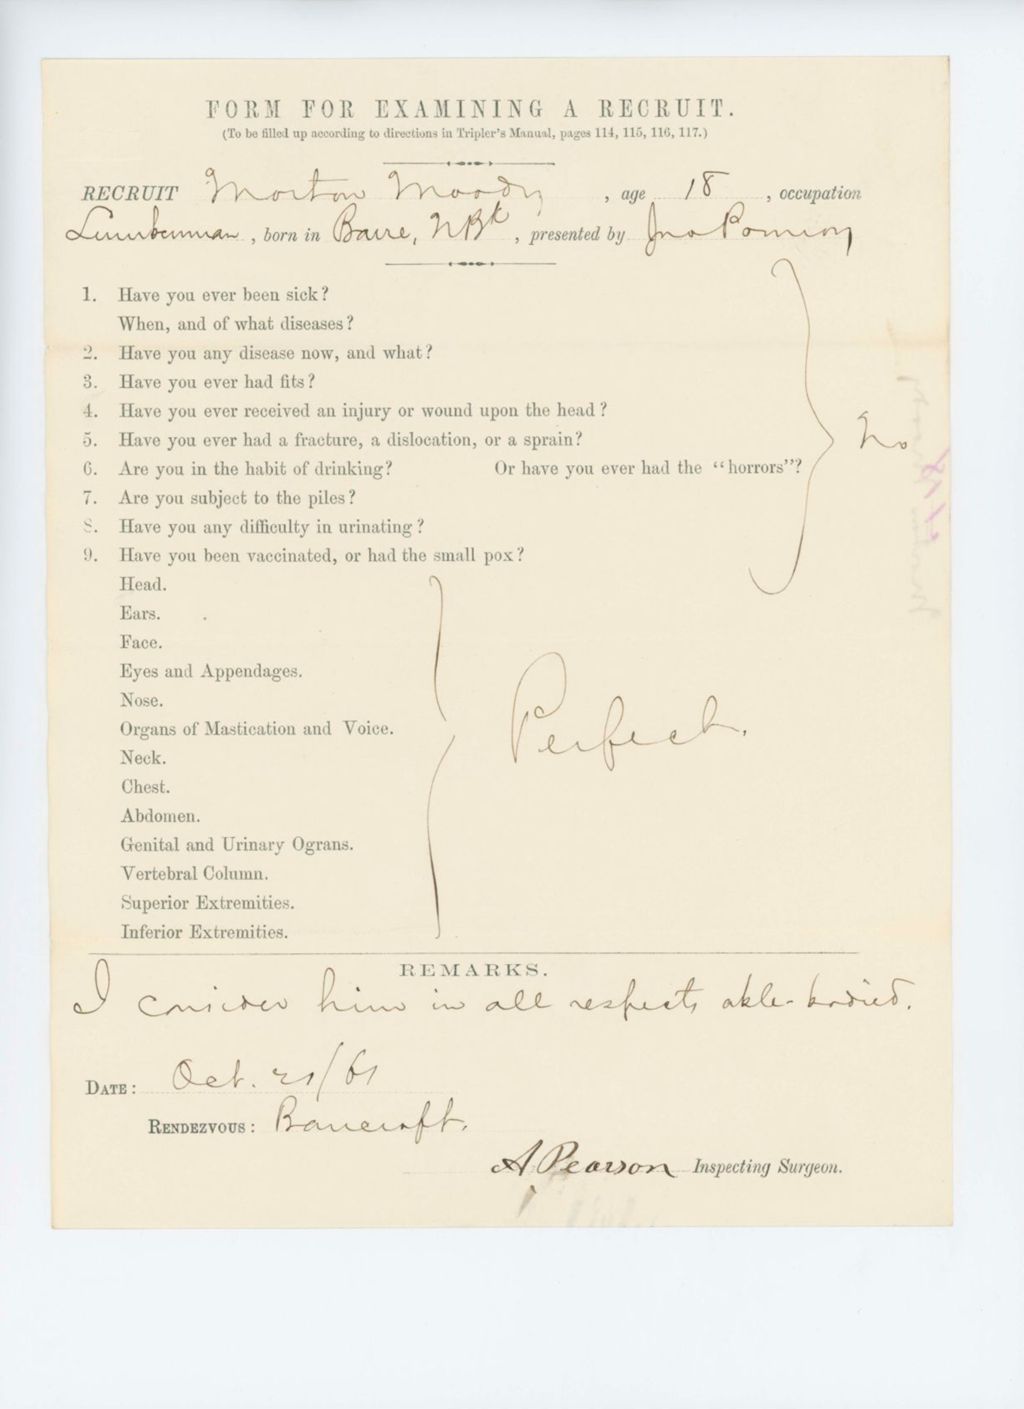 FORM FOR EXAMINING A RECRUIT.
(To be filled up according to directions in Tripler's Manual, pages 114, 115, 116, 117.)
RECRUIT Morton Moody, age 18, occupation
Lumberman, born in Barre, NBk, presented by Jno Pomroy
1. Have you ever been sick?
When, and of what diseases?
2. Have you any disease now, and what?
3. Have you ever had fits?
4. Have you ever received an injury or wound upon the head?
5. Have you ever had a fracture, a dislocation, or a sprain?
No
6. Are you in the habit of drinking? Or have you ever had the "horrors"?
7. Are you subject to the piles?
8. Have you any difficulty in urinating?
9. Have you been vaccinated, or had the small pox?
Head.
Ears.
Face.
Eyes and Appendages.
Nose.
Organs of Mastication and Voice.
Perfect.
Neck.
Chest.
Abdomen.
Genital and Urinary Ograns.
Vertebral Column.
Superior Extremities.
Inferior Extremities.
REMARKS.
I consider him in all respects able-bodied.
DATE: Oct. 21/61
RENDEZVOUS: Bancroft.
A Pearson Inspecting Surgeon.